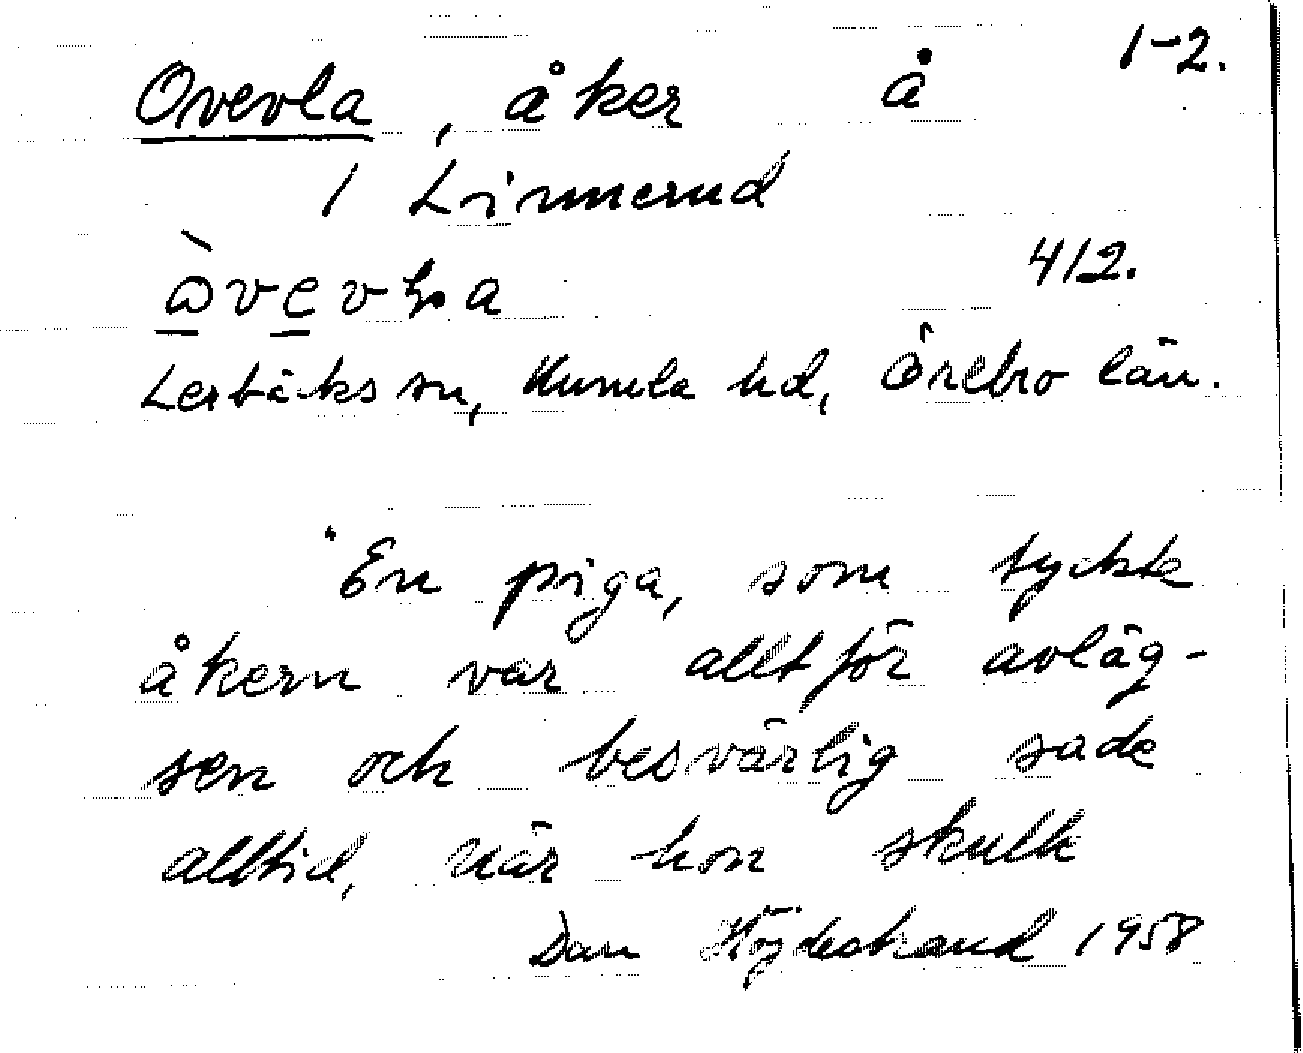 Overla, åker å 1-2.
1 Linnerud
412.
Lerbäcks sn, Kumla hd, Örebro län.
"En piga, som tyckte
åkern var alltför avläg-
sen och besvärlig sade
alltid, när hon skulle
Dan Höjdestrand 1958